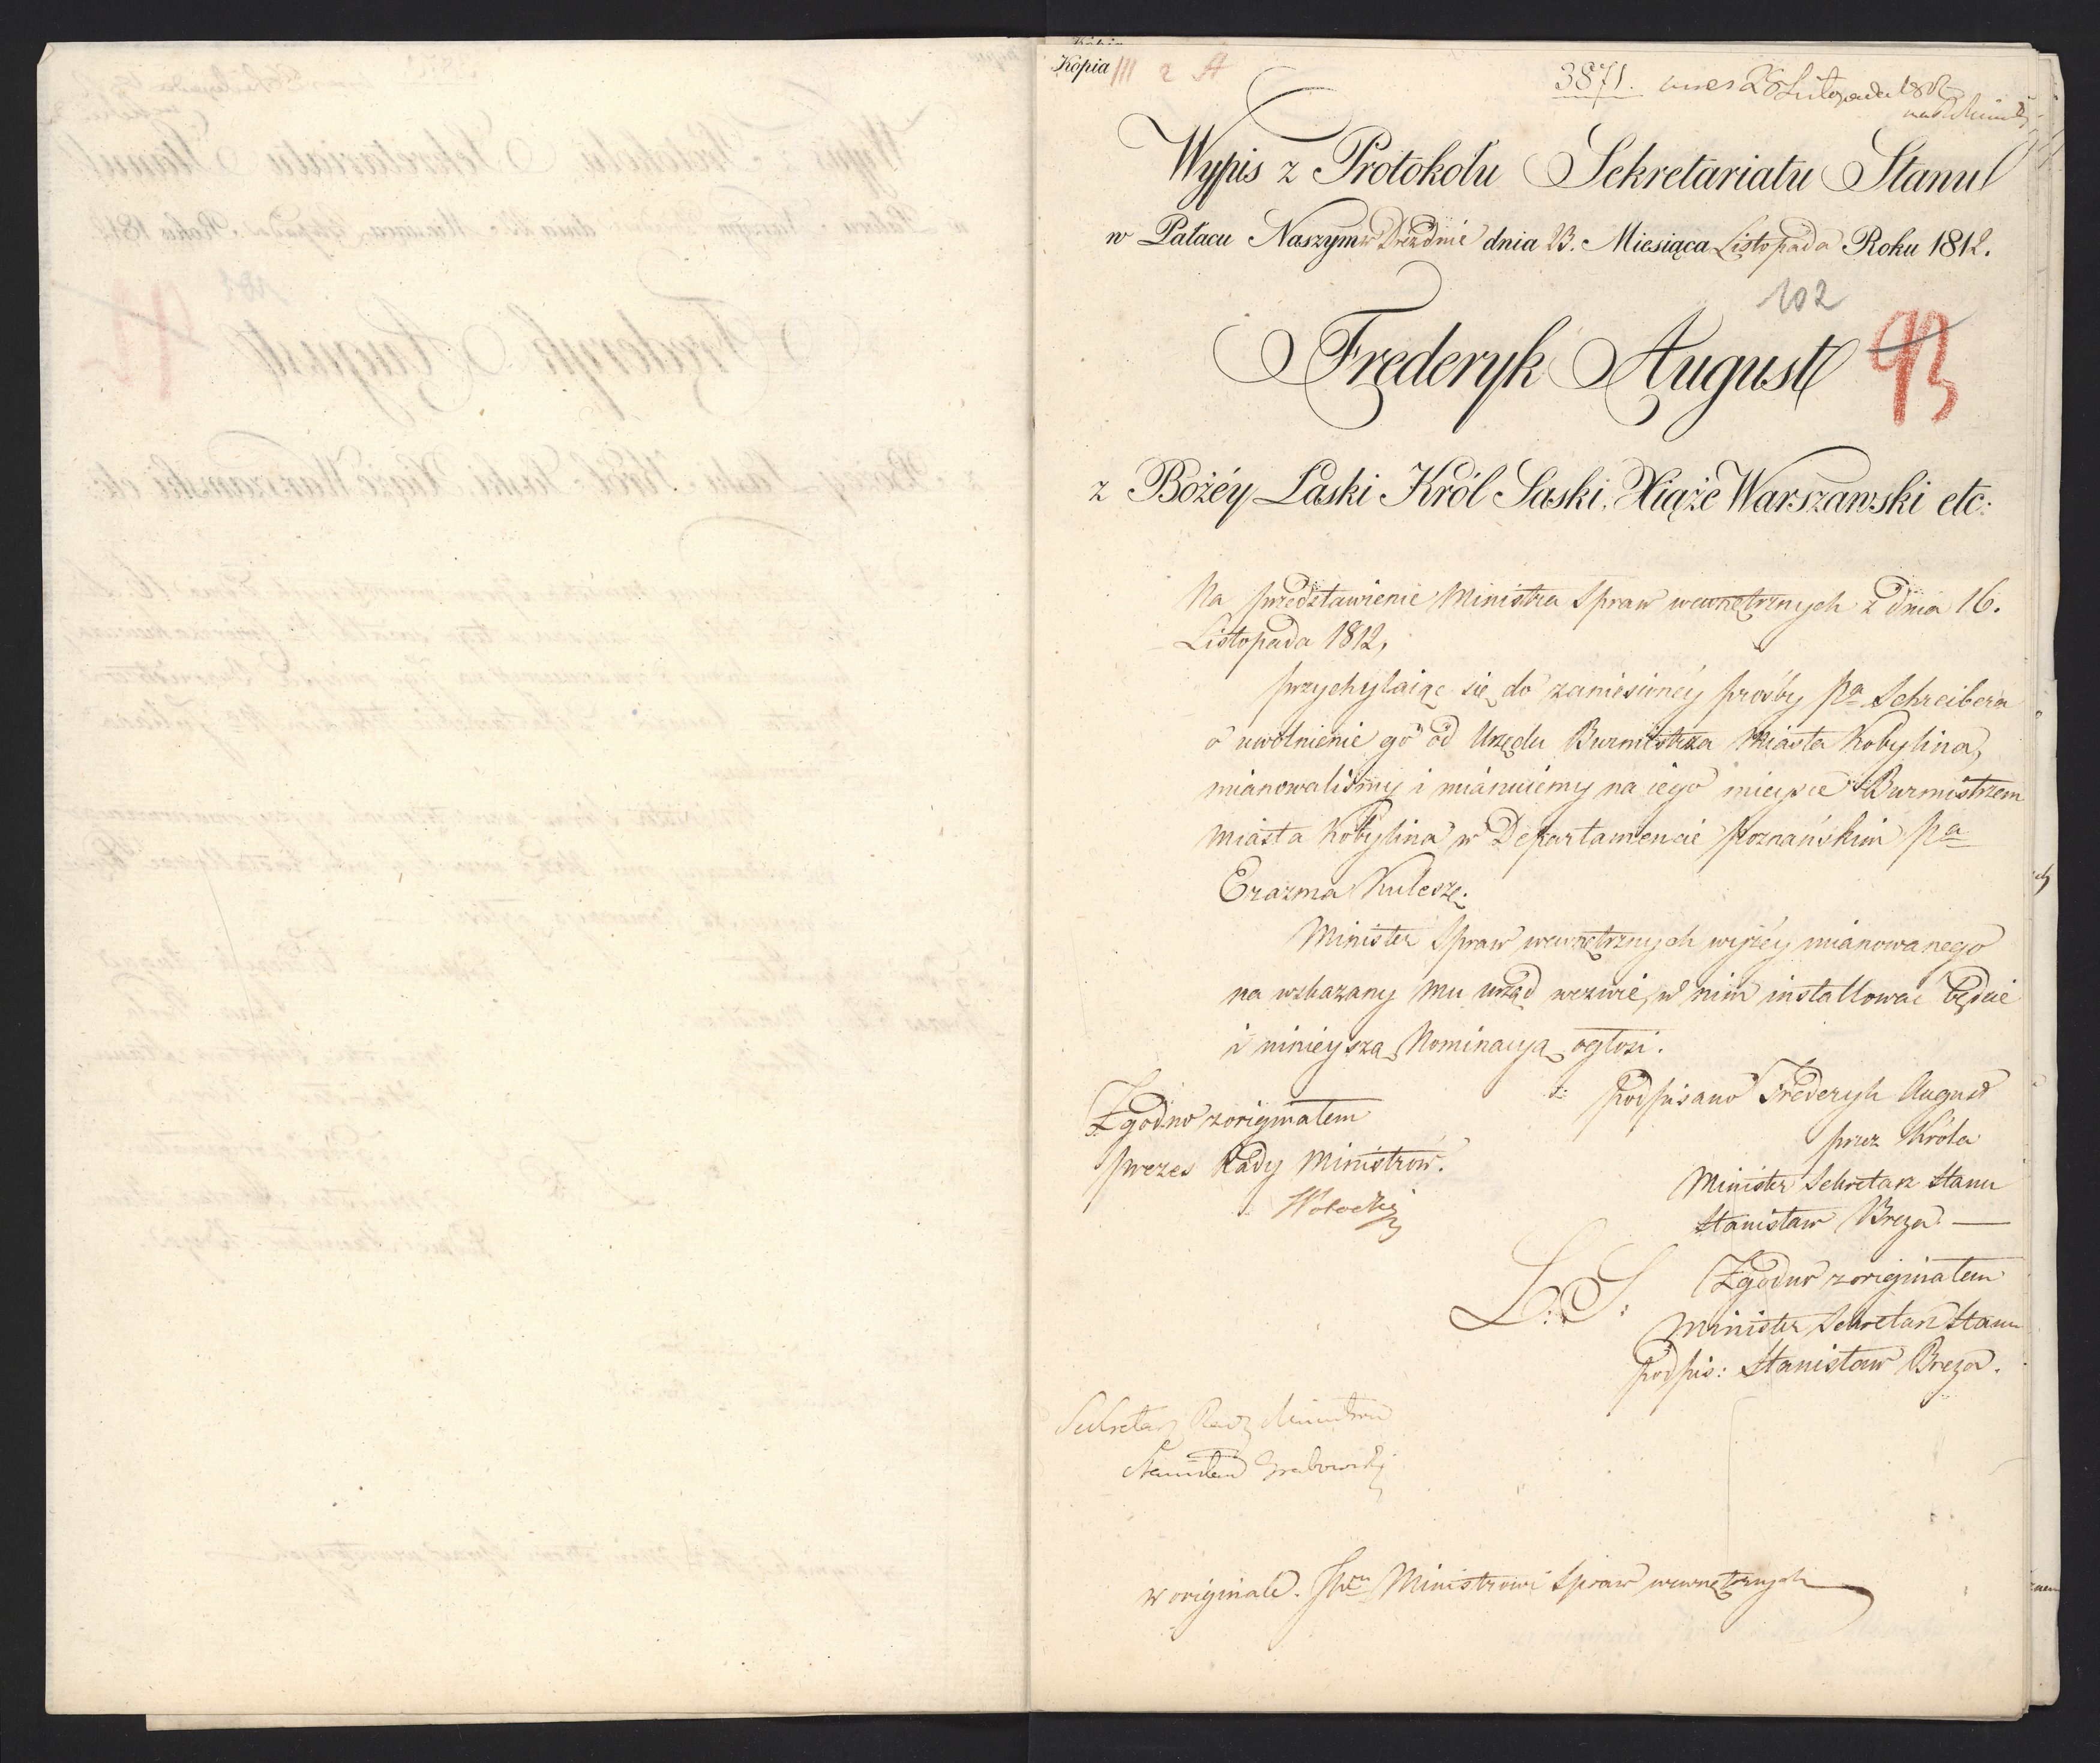 Kopia III 2 A
3871. 26 Listopada 1812
Wypis z Protokołu Sekretariatu Stanu
w Pałacu Naszym w Dreźnie dnia 23. Miesiąca Listopada Roku 1812.
102
Fryderyk August 93
z Bożéy Łaski Król Saski, Xiąże Warszawski etc:
Na przedstawienie Ministra Spraw wewnętrznych z dnia 16.
Listopada 1812,
przychylaiąc się do zaniesionéy prośby Pa Schreibera
o uwolnienie go od Urzędu Burmistrza Miasta Kobylina,
mianowaliśmy i mianuiemy na iego mieysce Burmistrzem
Miasta Kobylina w Departamencie Poznańskim Pa
Erazma Kuleszę.
Minister Spraw wewnętrznych wyżéy mianowanego
na wskazany mu urząd wezwie, w nim installować będzie
i ninieyszą Nominacyą ogłosi.
podpisano Frederyk August
przez Króla
Minister Sekretarz Stanu
Stanisław Breza —
Zgodno z originałem
Prezes Rady Ministrów.
L: S:
Zgodno z originałem
Minister Sekretarz Stanu
podpis: Stanisław Breza.
Sekretarz Rady Ministrów
Stanisław Grabowski
w originale. JWu Ministrowi Spraw wewnętrznych